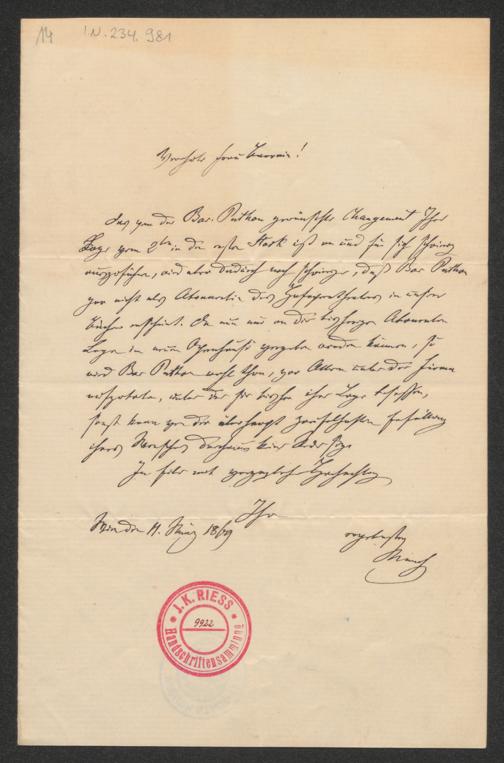 14 I.N. 234.981
Verehrte Frau Baronin!
Das von der Bar. Puthon gewünschte Changement Ihrer
Loge vom 2ten in den ersten Stock ist an und für sich schwierig
auszuführen, wird aber dadurch noch schwieriger, daß Bar Puthon
gar nicht als Abonnentin des Hofoperntheaters in unseren
Büchern erscheint. Da nun nur an die bisherigen Abonnenten
Logen im neuen Opernhause vergeben werden können, so
wird Bar Puthon wohl thun, vor Allem unter der Firma
unter der sie bisher ihre Loge besessen,
sonst kann von der überhaupt zweifelhaften Erfüllung
ihres Wunsches durchaus keine Rede sein.
In Eile mit vorzüglicher Hochachtung
Ihr
Wien den 11. März 1869 ergebenster
J. K. RIESS
9922
Handschriftensammlung